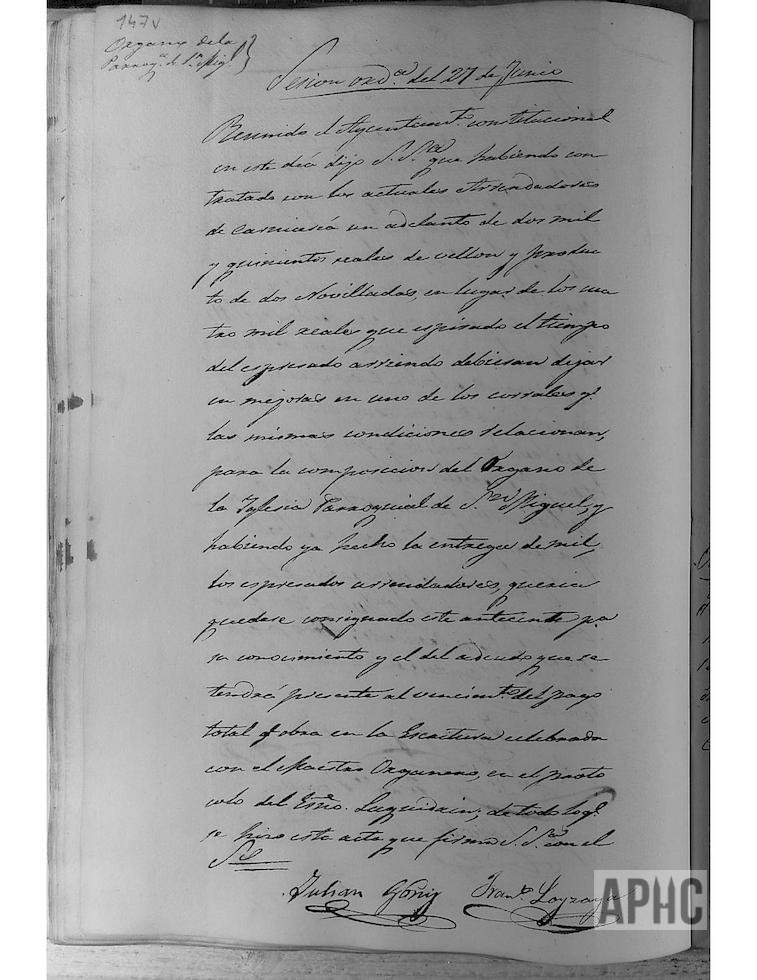 147v
Organo de la
Parroqª. de Sn. Migl.
Sesion ordª. del 27 de Junio
Reunido el Ayuntamto. constitucional
en este dia dijo S. Sria. que habiendo con
tratado con los actuales Arrendadores
de Carniceria un adelanto de dos mil
y quinientos reales de vellon y produc
to de dos Novilladas, en lugar de los cua
tro mil reales que espirado el tiempo
del espresado arriendo debieran dejar
en mejoras en uno de los corrales qe.
las mismas condiciones relacionan,
para la composicion del Organo de
la Yglesia Parroquial de Sn. Miguel, y
habiendo ya hecho la entrega de mil,
los espresados arrendadores, queria
quedase consignado este antecedente pª.
su conocimiento y el del adeudo que se
tendrá presente al vencimto. del pago
total q. obra en la Escritura celebrada
con el Maestro Organero, en el proto
colo del Esno. Luquidain; de todo lo qe.
se hizo este acta que firma S. Sª. con el
So.
Julian Goñi
Franº. Loyzaga
APHC